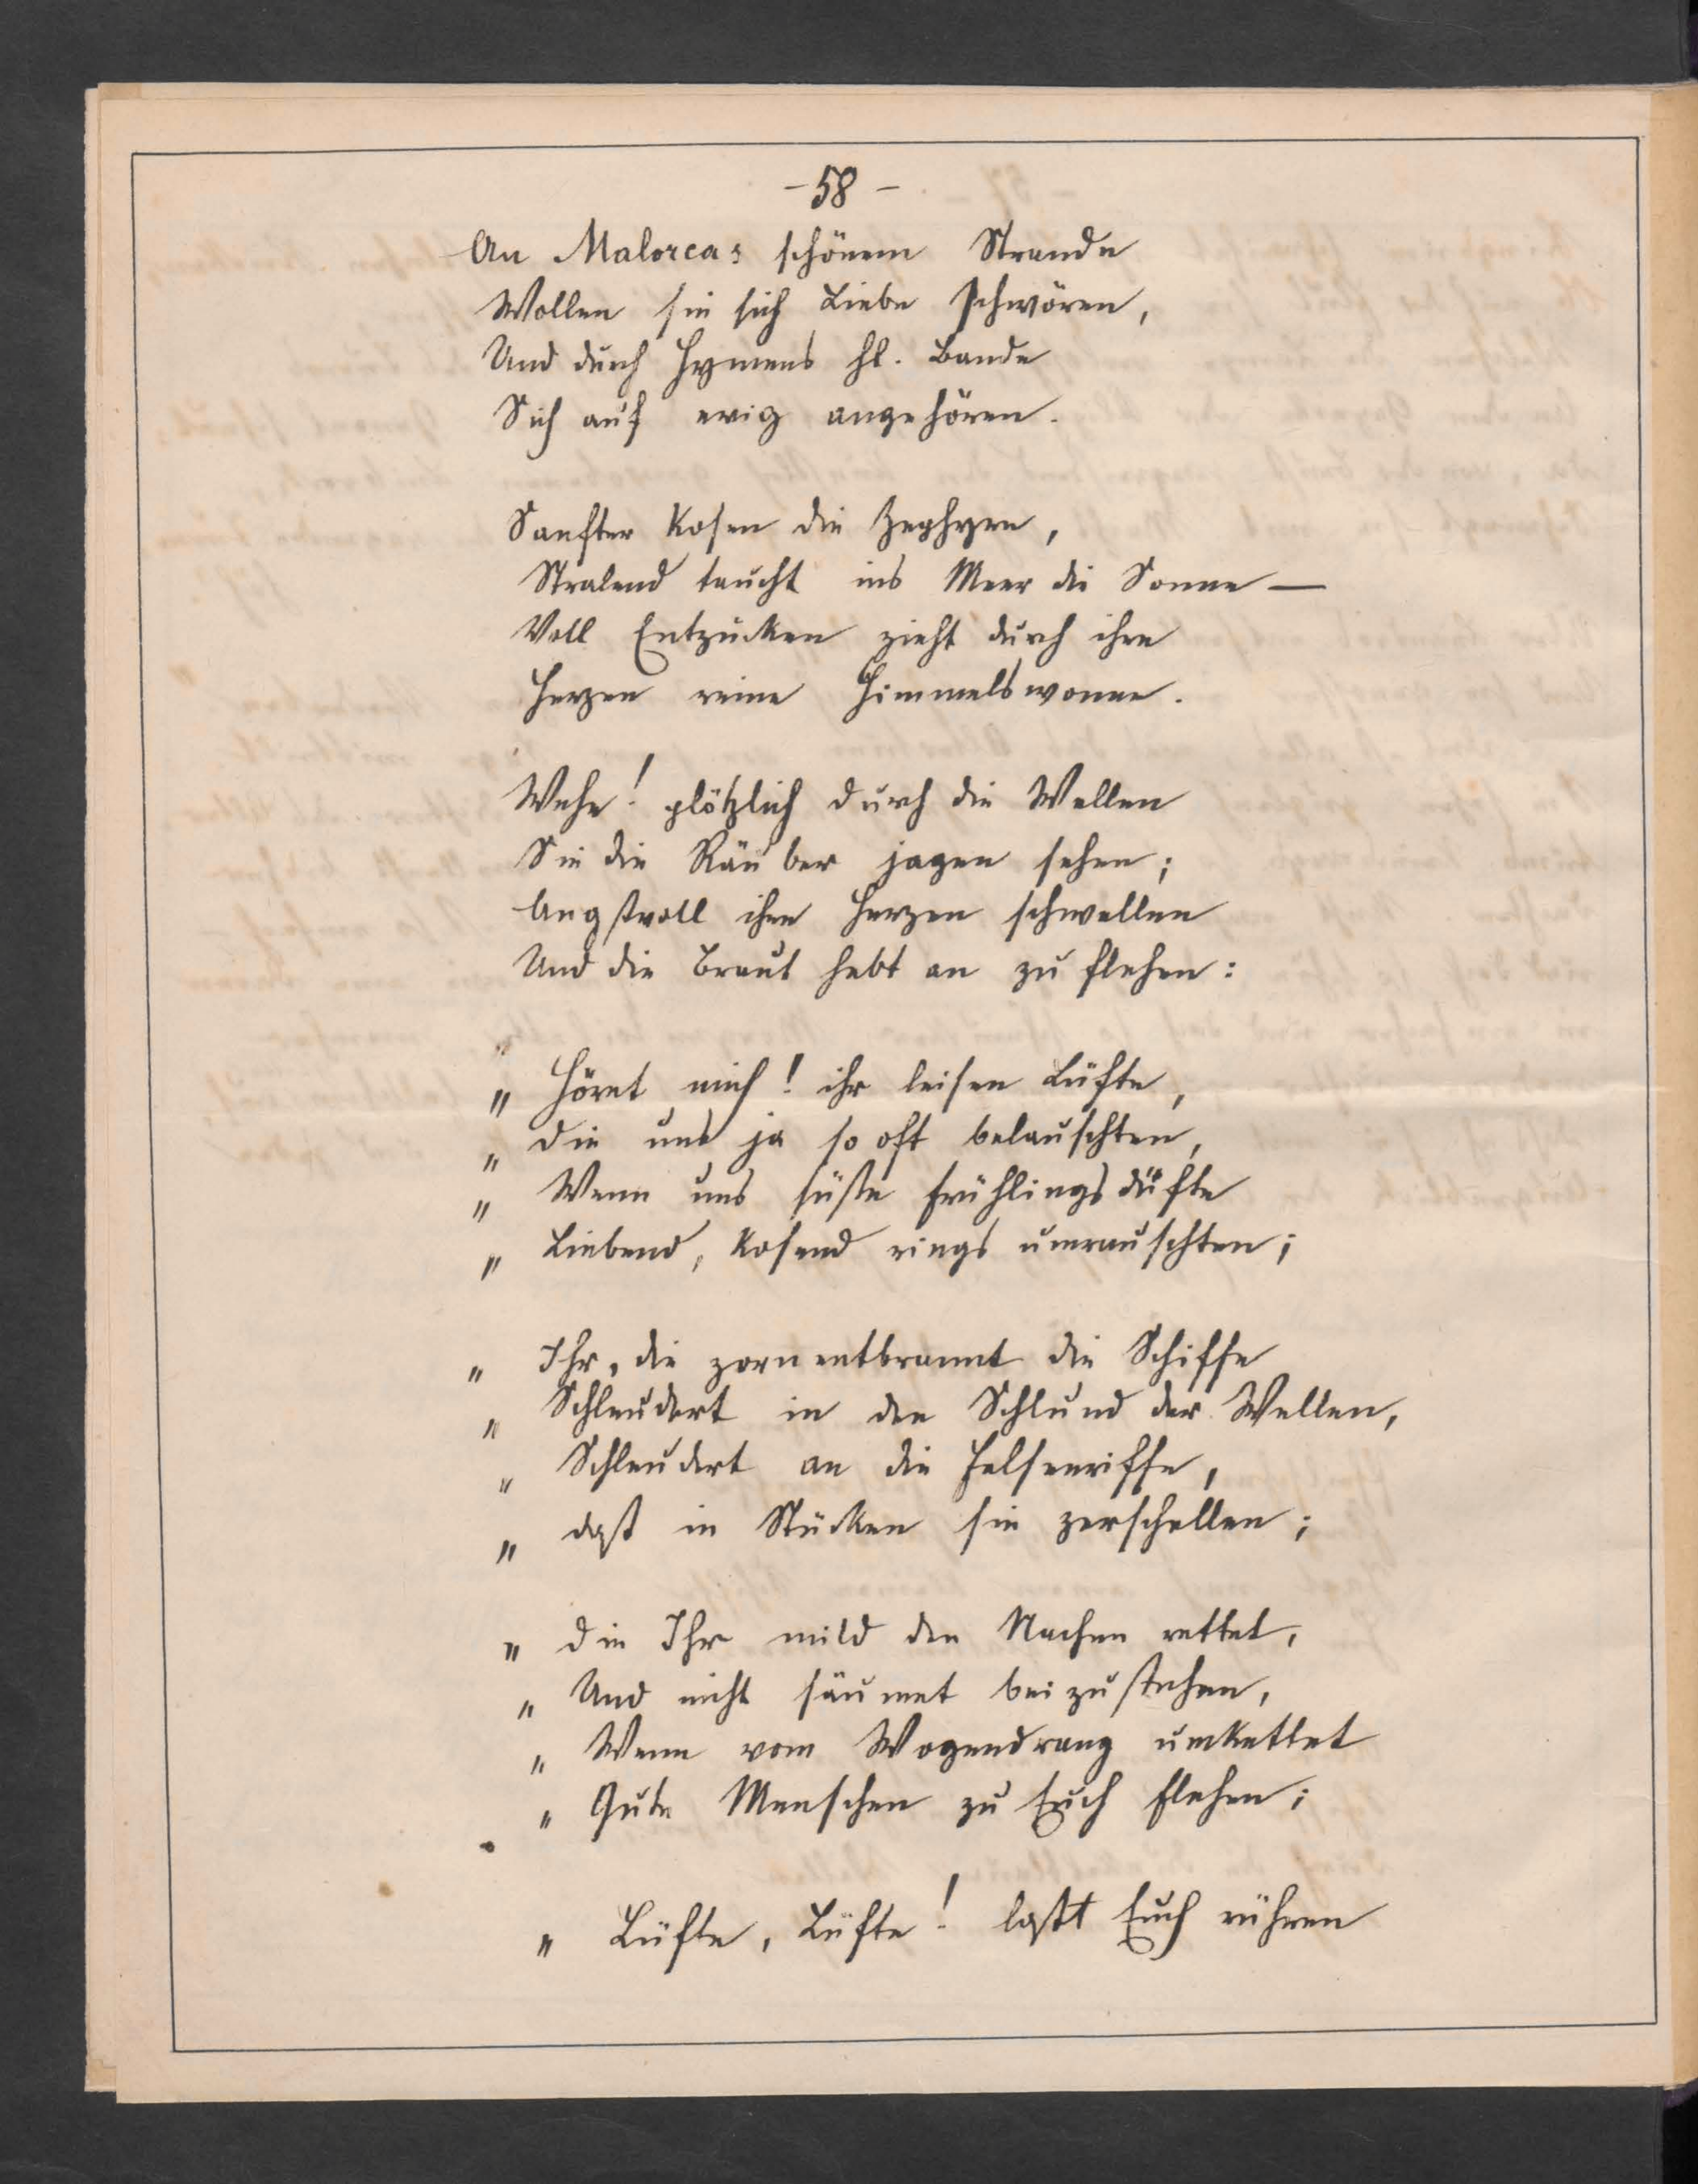 - 58 -
An Malorcas schönem Strande
Wollen sie sich Liebe schwören,
Und durch Hymens hl. Bande
Sich auf ewig angehören.
Sanfter kosen die Zephyre,
Stralend taucht ins Meer die Sonne —
Voll Entzücken zieht durch ihre
Herzen reine Himmelswonne.
Wehe! plötzlich durch die Wellen
Sie die Räuber jagen sehen;
Angstvoll ihre Herzen schwellen
Und die Braut hebt an zu flehen:
" Höret mich! ihr leisen Lüfte,
" Die uns ja so oft belauschten,
" Wenn uns süße Frühlingsdüfte
" Liebend, kosend rings umrauschten;
" Ihr, die zornentbrannt die Schiffe
" Schleudert in den Schlund der Wellen,
" Schleudert an die Felsenriffe,
" daß in Stücken sie zerschellen;
" Die Ihr mild den Nachen rettet,
" Und nicht säumet beizustehen,
" Wenn vom Wogendrang umkettet
" Gute Menschen zu Euch flehen;
" Lüfte, Lüfte! laßt Euch rühren